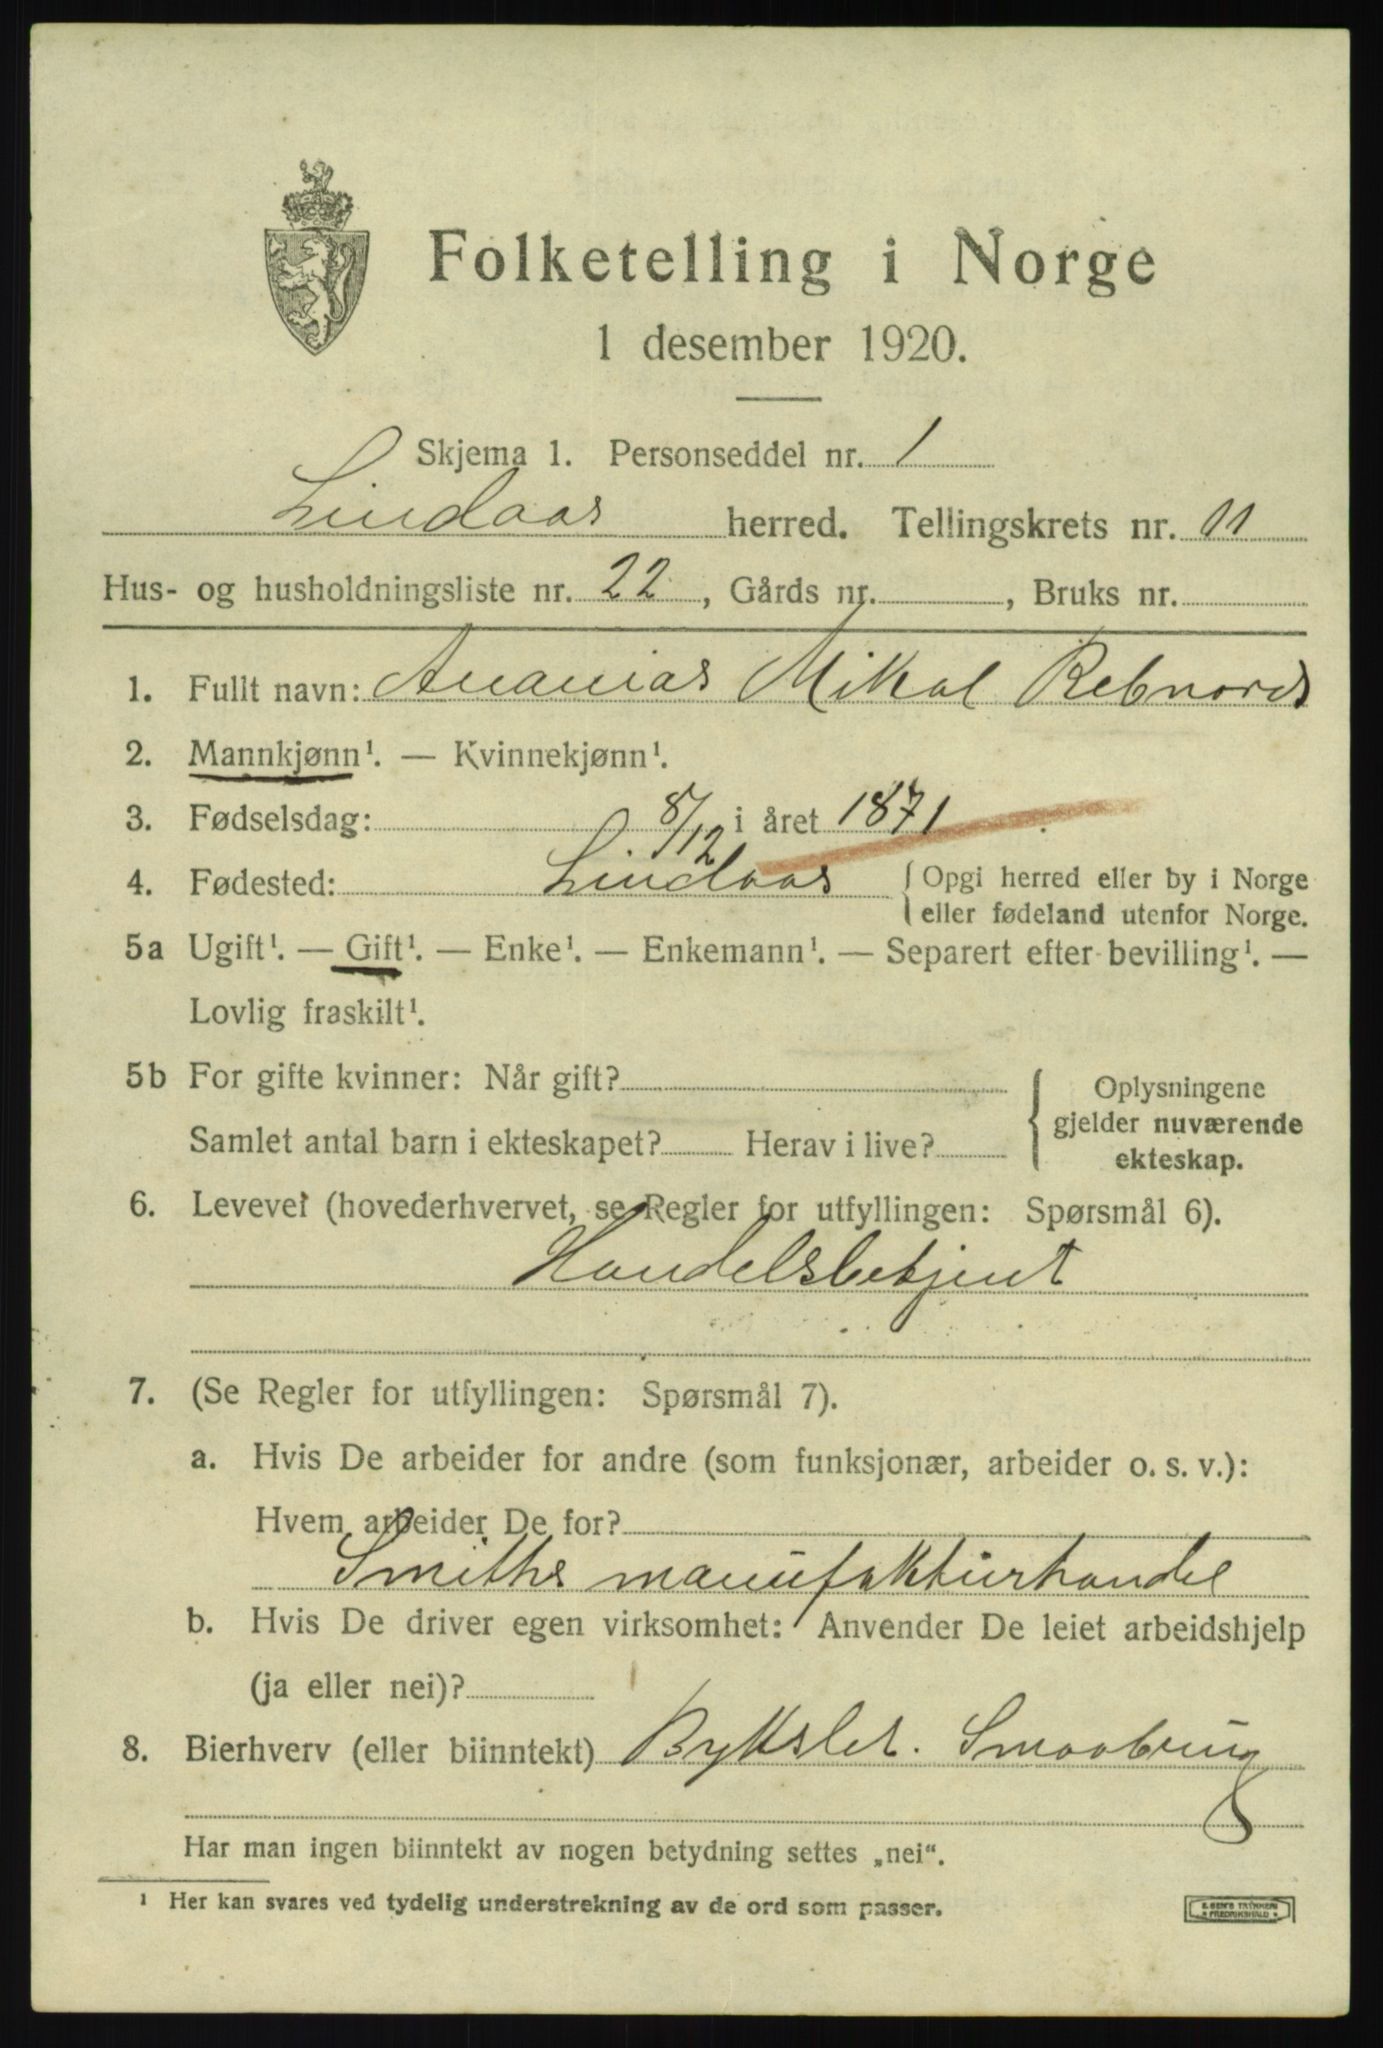 Folketelling i Norge
1 desember 1920.
Skjema 1. Personseddel nr. 1
Lindaas herred. Tellingskrets nr. 11
Hus- og husholdningsliste nr. 22, Gårds nr. , Bruks nr.
1. Fullt navn: Ananias Mikal Rebnord
2. Mannkjønn¹. — Kvinnekjønn¹.
3. Fødselsdag: 8/12 i året 1871
4. Fødested: Lindaas { Opgi herred eller by i Norge
eller fødeland utenfor Norge.
5a Ugift¹. — Gift¹. — Enke¹. — Enkemann¹. — Separert efter bevilling¹. —
Lovlig fraskilt¹.
5b For gifte kvinner: Når gift?
Samlet antal barn i ekteskapet? Herav i live?
{ Oplysningene
gjelder nuværende
ekteskap.
6. Levevei (hovederhvervet, se Regler for utfyllingen: Spørsmål 6).
Handelsbetjent
7. (Se Regler for utfyllingen: Spørsmål 7).
a. Hvis De arbeider for andre (som funksjonær, arbeider o. s. v.):
Hvem arbeider De for?
Smiths manufakturhandel
b. Hvis De driver egen virksomhet: Anvender De leiet arbeidshjelp
(ja eller nei)?
8. Bierhverv (eller biinntekt) Smaabrug
Har man ingen biinntekt av nogen betydning settes „nei“.
¹ Her kan svares ved tydelig understrekning av de ord som passer.